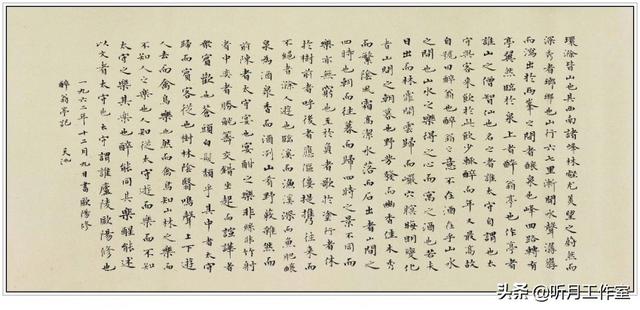 環滁皆山也其西南諸峰林壑尤美望之蔚然而
深秀者瑯琊也山行六七里漸聞水聲潺潺
而瀉出於兩峯之間者釀泉也峰回路轉有
亭翼然臨於泉上者醉翁亭也作亭者
誰山之僧智仙也名之者誰太守自謂也太
守與客來飲於此飲少輒醉而年又最高故
自號曰醉翁也醉翁之意不在酒在乎山水
之間也山水之樂得之心而寓之酒也若夫
日出而林霏開雲歸而巖穴暝晦明變化
者山間之朝暮也野芳發而幽香佳木秀
而繁陰風霜高潔水落而石出者山間之
四時也朝而往暮而歸四時之景不同而
樂亦無窮也至於負者歌於塗行者休
於樹前者呼後者應傴僂提攜往來而
不絕者滁人遊也臨溪而漁溪深而魚肥釀
泉為酒泉香而酒洌山肴野蔌雜然而
前陳者太守宴也宴酣之樂非絲非竹射
者中奕者勝觥籌交錯坐起而諠譁者
衆賓歡也蒼顏白髮頹乎其中者太守
歸而賓客從也樹林陰翳鳴聲上下遊
人去而禽鳥樂也然而禽鳥知山林之樂而
不知人之樂人知從太守遊而樂而不知
太守之樂其樂也醉能同其樂醒能述
以文者太守也太守謂誰廬陵歐陽修也
一九六二年十二月九日書歐陽修
醉翁亭記
头条 @听月工作室